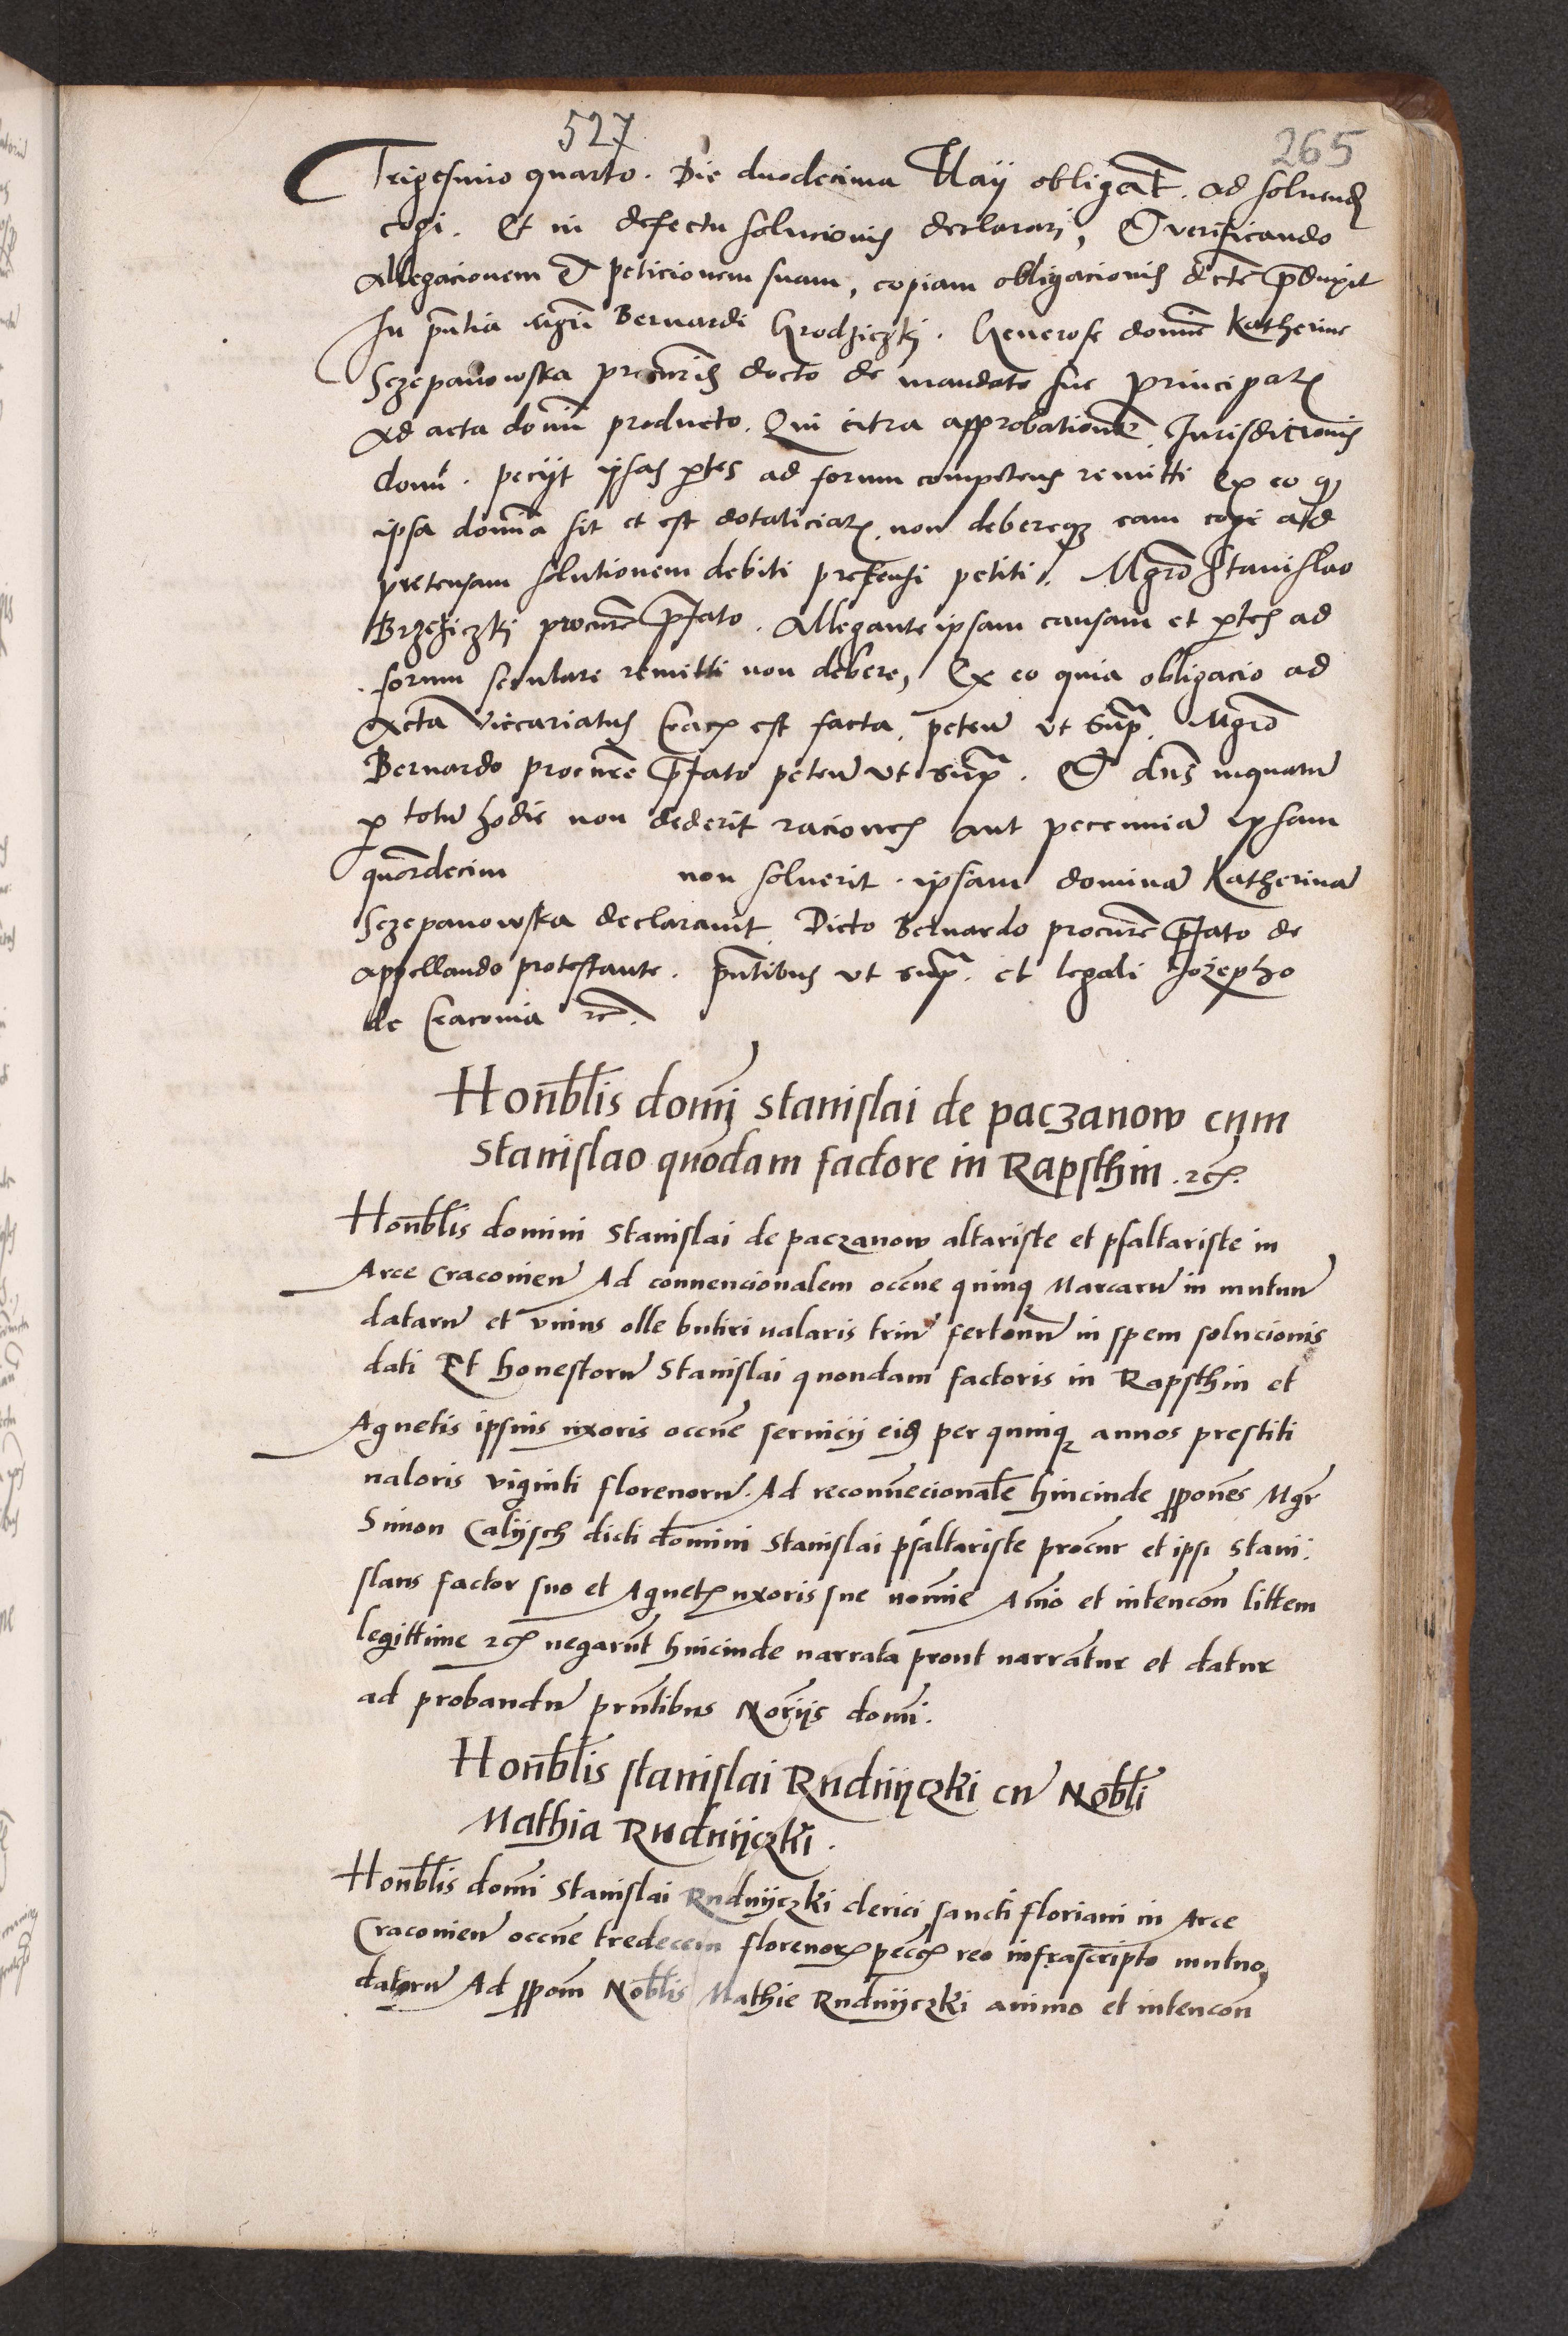 527
265
Trigesimo quarto. Die duodecima Maij obligat. ad solvend
cogi. Et in defectu solucionis declarari, Et verificando
Allegacionem Et peticionem suam, copiam obligacionis dicte produxit
In pntia mgri Bernardi Grodziczkj. Generose domine Katherine
Sczepanowska procuris docto de mandato sue principar
Ad acta domi producto. Qui citra approbatione Jurisdictionis
domi. pecijt ipsas ptes ad forum competens remitti Ex eo q
ipsa domina sit et est dotaliciar. non debereq eam cogi ad
pretensam solutionem debiti pretensi petiti. Mgro Stanislao
Brzeziczkj procure pfato. Allegante ipsam causam et ptes ad
forum seculare remitti non debere, Ex eo quia obligacio ad
Acta vicariatus Crac est facta. peten ut Supra. Mgro
Bernardo procure pfato peten ut supra. Et dns inquatu
p totu hodie non dederit raciones aut pecunia ipsam
quordecim non solverit. ipsam domina Katherina
Sczepanowska declaravit. Dicto Bernardo procure pfato de
appellando protestante. pntibus ut supra. et legali Jozepho
de Cracovia rc.
Honblis domi Stanislai de paczanow cum
Stanislao quodam factore in Rapsthin. rc.
Honblis domini Stanislai de paczanow altariste et psaltariste in
Arce Cracovien Ad convencionalem occne quinq Marcaru in mutuu
dataru et unius olle butiri valaris triu fertonu in spem solucionis
dati Et honestoru Stanislai quondam factoris in Rapsthin et
Agnetis ipsius uxoris occne servicij eis per quinq annos prestiti
valoris viginti florenoru. Ad reconvecionale hincinde ppones Mgr
Simon Calijsch dicti domini Stanislai psaltariste procur et ipse Stani
slaus factor suo et Agnet uxoris sue nomine Animo et intencon littem
legittime rc negarut hincinde narrata prout narrantur et datur
ad probandu prntibus Norijs domi.
Honblis stanislai Rudnijczki cu Nobli
Mathia Rudnijczki.
Honblis domi Stanislai Rudnijczki clerici sancti floriani in Arce
Cracovien occne tredecem florenor pecc reo infrascripto mutuo
dataru Ad ppom Noblis Mathie Rudnijczki animo et intencon